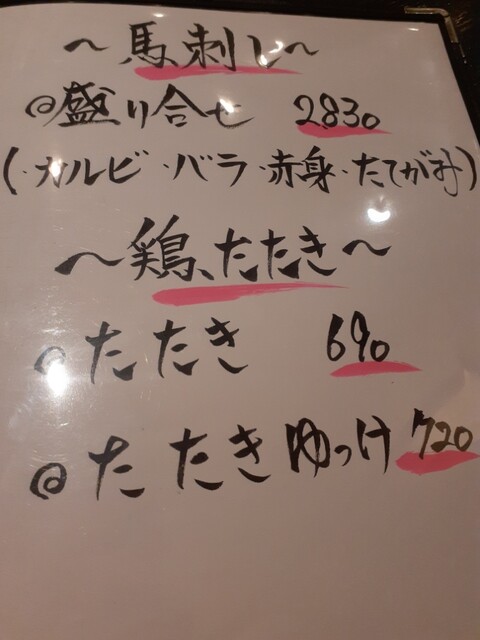 ～馬刺し～
@盛り合せ 2830
(・カルビ・バラ・赤身・たてがみ)
～鶏、たたき～
@たたき 690
@たたきゆっけ 720